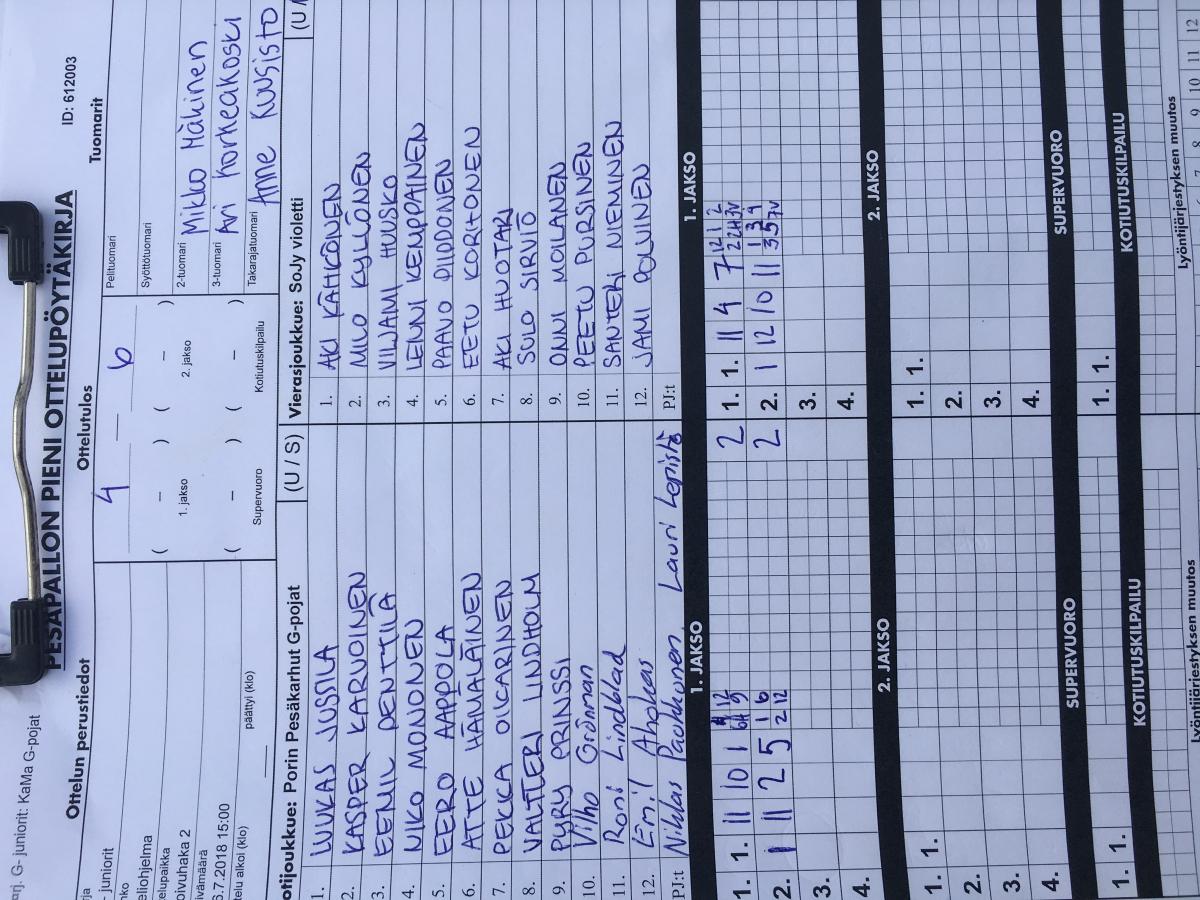 PESÄPALLON PIENI OTTELUPÖYTÄKIRJA
ID: 612003
G- juniorit: KaMa G-pojat
Ottelun perustiedot
Ottelutulos
Tuomarit
juniorit
4 — 6
Pelituomari
( – ) ( – )
Syöttötuomari
1. jakso 2. jakso
2-tuomari Mikko Mäkinen
( – ) ( – )
3-tuomari Ari Korkeakoski
Supervuoro Kotiutuskilpailu
Takarajatuomari Anne Kuusisto
2018 15:00
päättyi (klo)
otijoukkue: Porin Pesäkarhut G-pojat (U / S)
1. LUUKAS JUSSILA
2. KASPER KARVOINEN
3. EEMIL PENTTILÄ
4. NIKO MONONEN
5. EERO AAPPOLA
6. ATTE HÄMÄLÄINEN
7. PEKKA OLLCARINEN
8. VALTTERI LINDHOLM
9. PYRY PRINSSI
10. Vilho Grönman
11. Roni Lindblad
12. Emil Ahokas
PJ:t Niklas Paukkunen Lauri Lepistö
Vierasjoukkue: SoJy violetti
1. AKI KÄHKÖNEN
2. MILO KYLLÖNEN
3. VILJAMI HUUSKO
4. LENNI KEMPPAINEN
5. PAAVO PIIPPONEN
6. EETU KORHONEN
7. AKU HUOTARI
8. SULO SIRVIÖ
9. ONNI MOILANEN
10. PEETU PURSINEN
11. SANTERI NIEMINEN
12. JAMI POLVINEN
PJ:t
1. JAKSO 1. JAKSO
1. 1. 11 10 1 2
2. 1 11 2 5 2
3.
4.
1. 1. 11 4 7
2. 1 12 10 11
3.
4.
2. JAKSO 2. JAKSO
1. 1.
2.
3.
4.
1. 1.
2.
3.
4.
SUPERVUORO SUPERVUORO
1. 1.
1. 1.
KOTIUTUSKILPAILU KOTIUTUSKILPAILU
Lyöntijärjestyksen muutos Lyöntijärjestyksen muutos
8 9 10 11 12